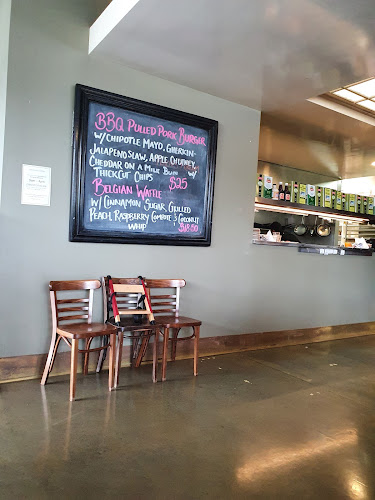 BBQ PULLED PORK BURGER
W/ CHIPOTLE MAYO, GHERKIN-
JALAPENO SLAW, APPLE CHUTNEY,
CHEDDAR ON A MILK BUN W/
THICKCUT CHIPS $25
BELGIAN WAFFLE
W/ CINNAMON SUGAR GRILLED
PEACH, RASPBERRY COMPOTE & COCONUT
WHIP $18.50